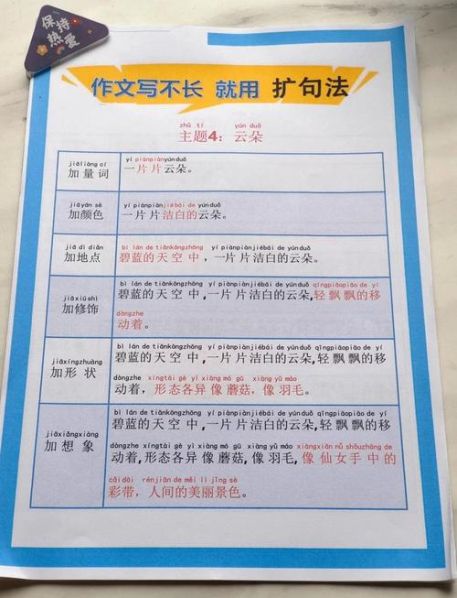 保持
热爱
作文写不长 就用 扩句法
zhǔ tí yún duǒ
主题4：云朵
jiāliàng cí
加量词
yí piànpiànyúnduǒ
一片片云朵。
jiāyán sè
加颜色
yí piànpiànjiébái de yúnduǒ
一片片洁白的云朵。
jiā dì diǎn
加地点
bì lán de tiānkōngzhōng yí piànpiànjiébái de yúnduǒ
碧蓝的天空中，一片片洁白的云朵。
jiāxiūshì
加修饰
bì lán de tiānkōngzhōng yí piànpiànjiébái de yúnduǒ qīngpiāopiāo de yí
碧蓝的天空中,一片片洁白的云朵,轻飘飘的移
dòngzhe
动着。
jiāxíngzhuàng
加形状
bì lán de tiānkōngzhōng yí piànpiànjiébái de yúnduǒ qīngpiāopiāo de yí
碧蓝的天空中,一片片洁白的云朵,轻飘飘的移
dòngzhe xíngtài gè yì xiàng mó gū xiàng yǔ máo
动着，形态各异像蘑菇，像羽毛。
jiāxiǎngxiàng
加想象
bì lán de tiānkōngzhōng yí piànpiànjiébái de yúnduǒ qīngpiāopiāo de yí
碧蓝的天空中,一片片洁白的云朵,轻飘飘的移
dòngzhe xíngtài gè yì xiàng mó gū xiàng yǔ máo xiàngxiān nǚ shǒuzhōng de
动着,形态各异像蘑菇,像羽毛,像仙女手中的
cǎi dài rénjiān de měi lì jǐng sè
彩带，人间的美丽景色。